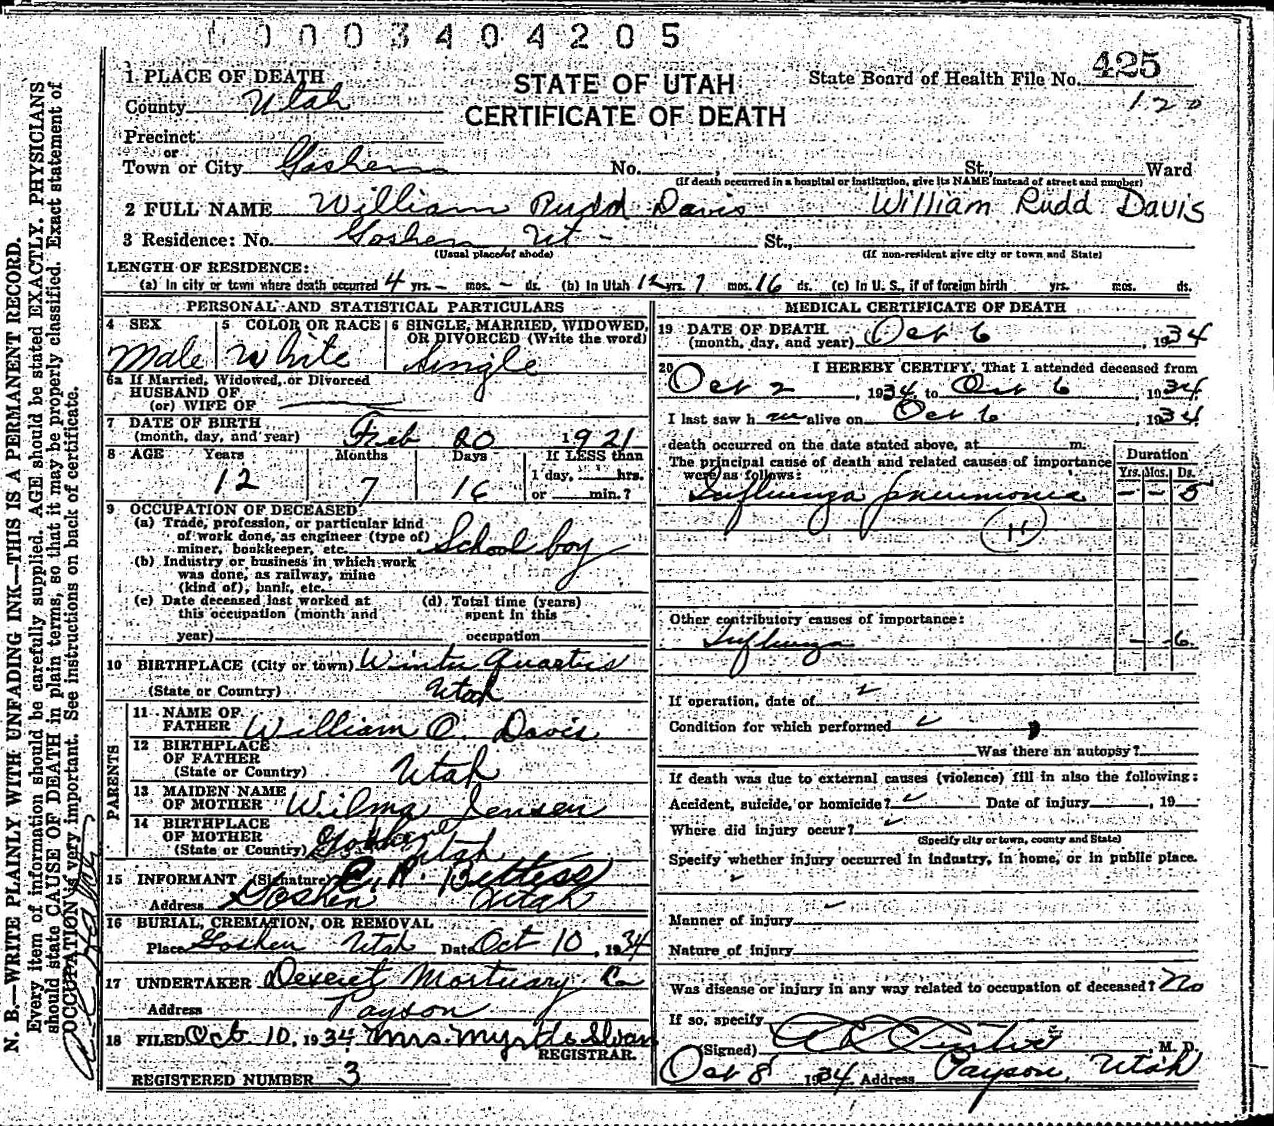 0003404205
STATE OF UTAH
CERTIFICATE OF DEATH
State Board of Health File No. 425
120
1 PLACE OF DEATH
County Utah
Precinct
or
Town or City Goshen No. , St., Ward
(If death occurred in a hospital or institution, give its NAME instead of street and number)
2 FULL NAME William Rudd Davis William Rudd Davis
3 Residence: No. Goshen, Ut - St.,
(Usual place of abode) (If non-resident give city or town and State)
LENGTH OF RESIDENCE:
(a) In city or town where death occurred 4 yrs. - mos. - ds. (b) In Utah 12 yrs. 7 mos. 16 ds. (c) In U. S., if of foreign birth yrs. mos. ds.
PERSONAL AND STATISTICAL PARTICULARS
4 SEX
Male
5 COLOR OR RACE
White
6 SINGLE, MARRIED, WIDOWED,
OR DIVORCED (Write the word)
Single
6a If Married, Widowed, or Divorced
HUSBAND OF
(or) WIFE OF
7 DATE OF BIRTH
(month, day, and year) Feb 20 1921
8 AGE Years Months Days If LESS than
12 7 16 1 day, hrs.
or min.?
9 OCCUPATION OF DECEASED
(a) Trade, profession, or particular kind
of work done, as engineer (type of)
miner, bookkeeper, etc. School boy
(b) Industry or business in which work
was done, as railway, mine
(kind of), bank, etc.
(c) Date deceased last worked at
this occupation (month and
year)
(d) Total time (years)
spent in this
occupation
10 BIRTHPLACE (City or town) Winter Quarters
(State or Country) Utah
PARENTS
11 NAME OF
FATHER William O. Davis
12 BIRTHPLACE
OF FATHER
(State or Country) Utah
13 MAIDEN NAME
OF MOTHER Wilma Jensen
14 BIRTHPLACE
OF MOTHER
(State or Country) Utah
15 INFORMANT (Signature)
Address Goshen Utah
16 BURIAL, CREMATION, OR REMOVAL
Place Goshen Utah Date Oct 10, 1934
17 UNDERTAKER Deseret Mortuary Co
Address Payson
18 FILED Oct 10, 1934 Mrs. Myrtle Sloan
REGISTRAR.
REGISTERED NUMBER 3
MEDICAL CERTIFICATE OF DEATH
19 DATE OF DEATH
(month, day, and year) Oct 6, 1934
20 I HEREBY CERTIFY, That I attended deceased from
Oct 2, 1934, to Oct 6, 1934
I last saw h im alive on Oct 6, 1934
death occurred on the date stated above, at m.
The principal cause of death and related causes of importance
were as follows:
Duration
Yrs. Mos. Ds.
Influenza pneumonia - - 5
11
Other contributory causes of importance:
Influenza - 6
If operation, date of
Condition for which performed
Was there an autopsy?
If death was due to external causes (violence) fill in also the following:
Accident, suicide, or homicide? Date of injury , 19
Where did injury occur?
(Specify city or town, county and State)
Specify whether injury occurred in industry, in home, or in public place.
Manner of injury
Nature of injury
Was disease or injury in any way related to occupation of deceased? No
If so, specify
(Signed) , M. D.
Oct 8 1934 Address Payson, Utah
N. B.—WRITE PLAINLY WITH UNFADING INK—THIS IS A PERMANENT RECORD.
Every item of information should be carefully supplied. AGE should be stated EXACTLY. PHYSICIANS
should state CAUSE OF DEATH in plain terms, so that it may be properly classified. Exact statement of
OCCUPATION is very important. See instructions on back of certificate.